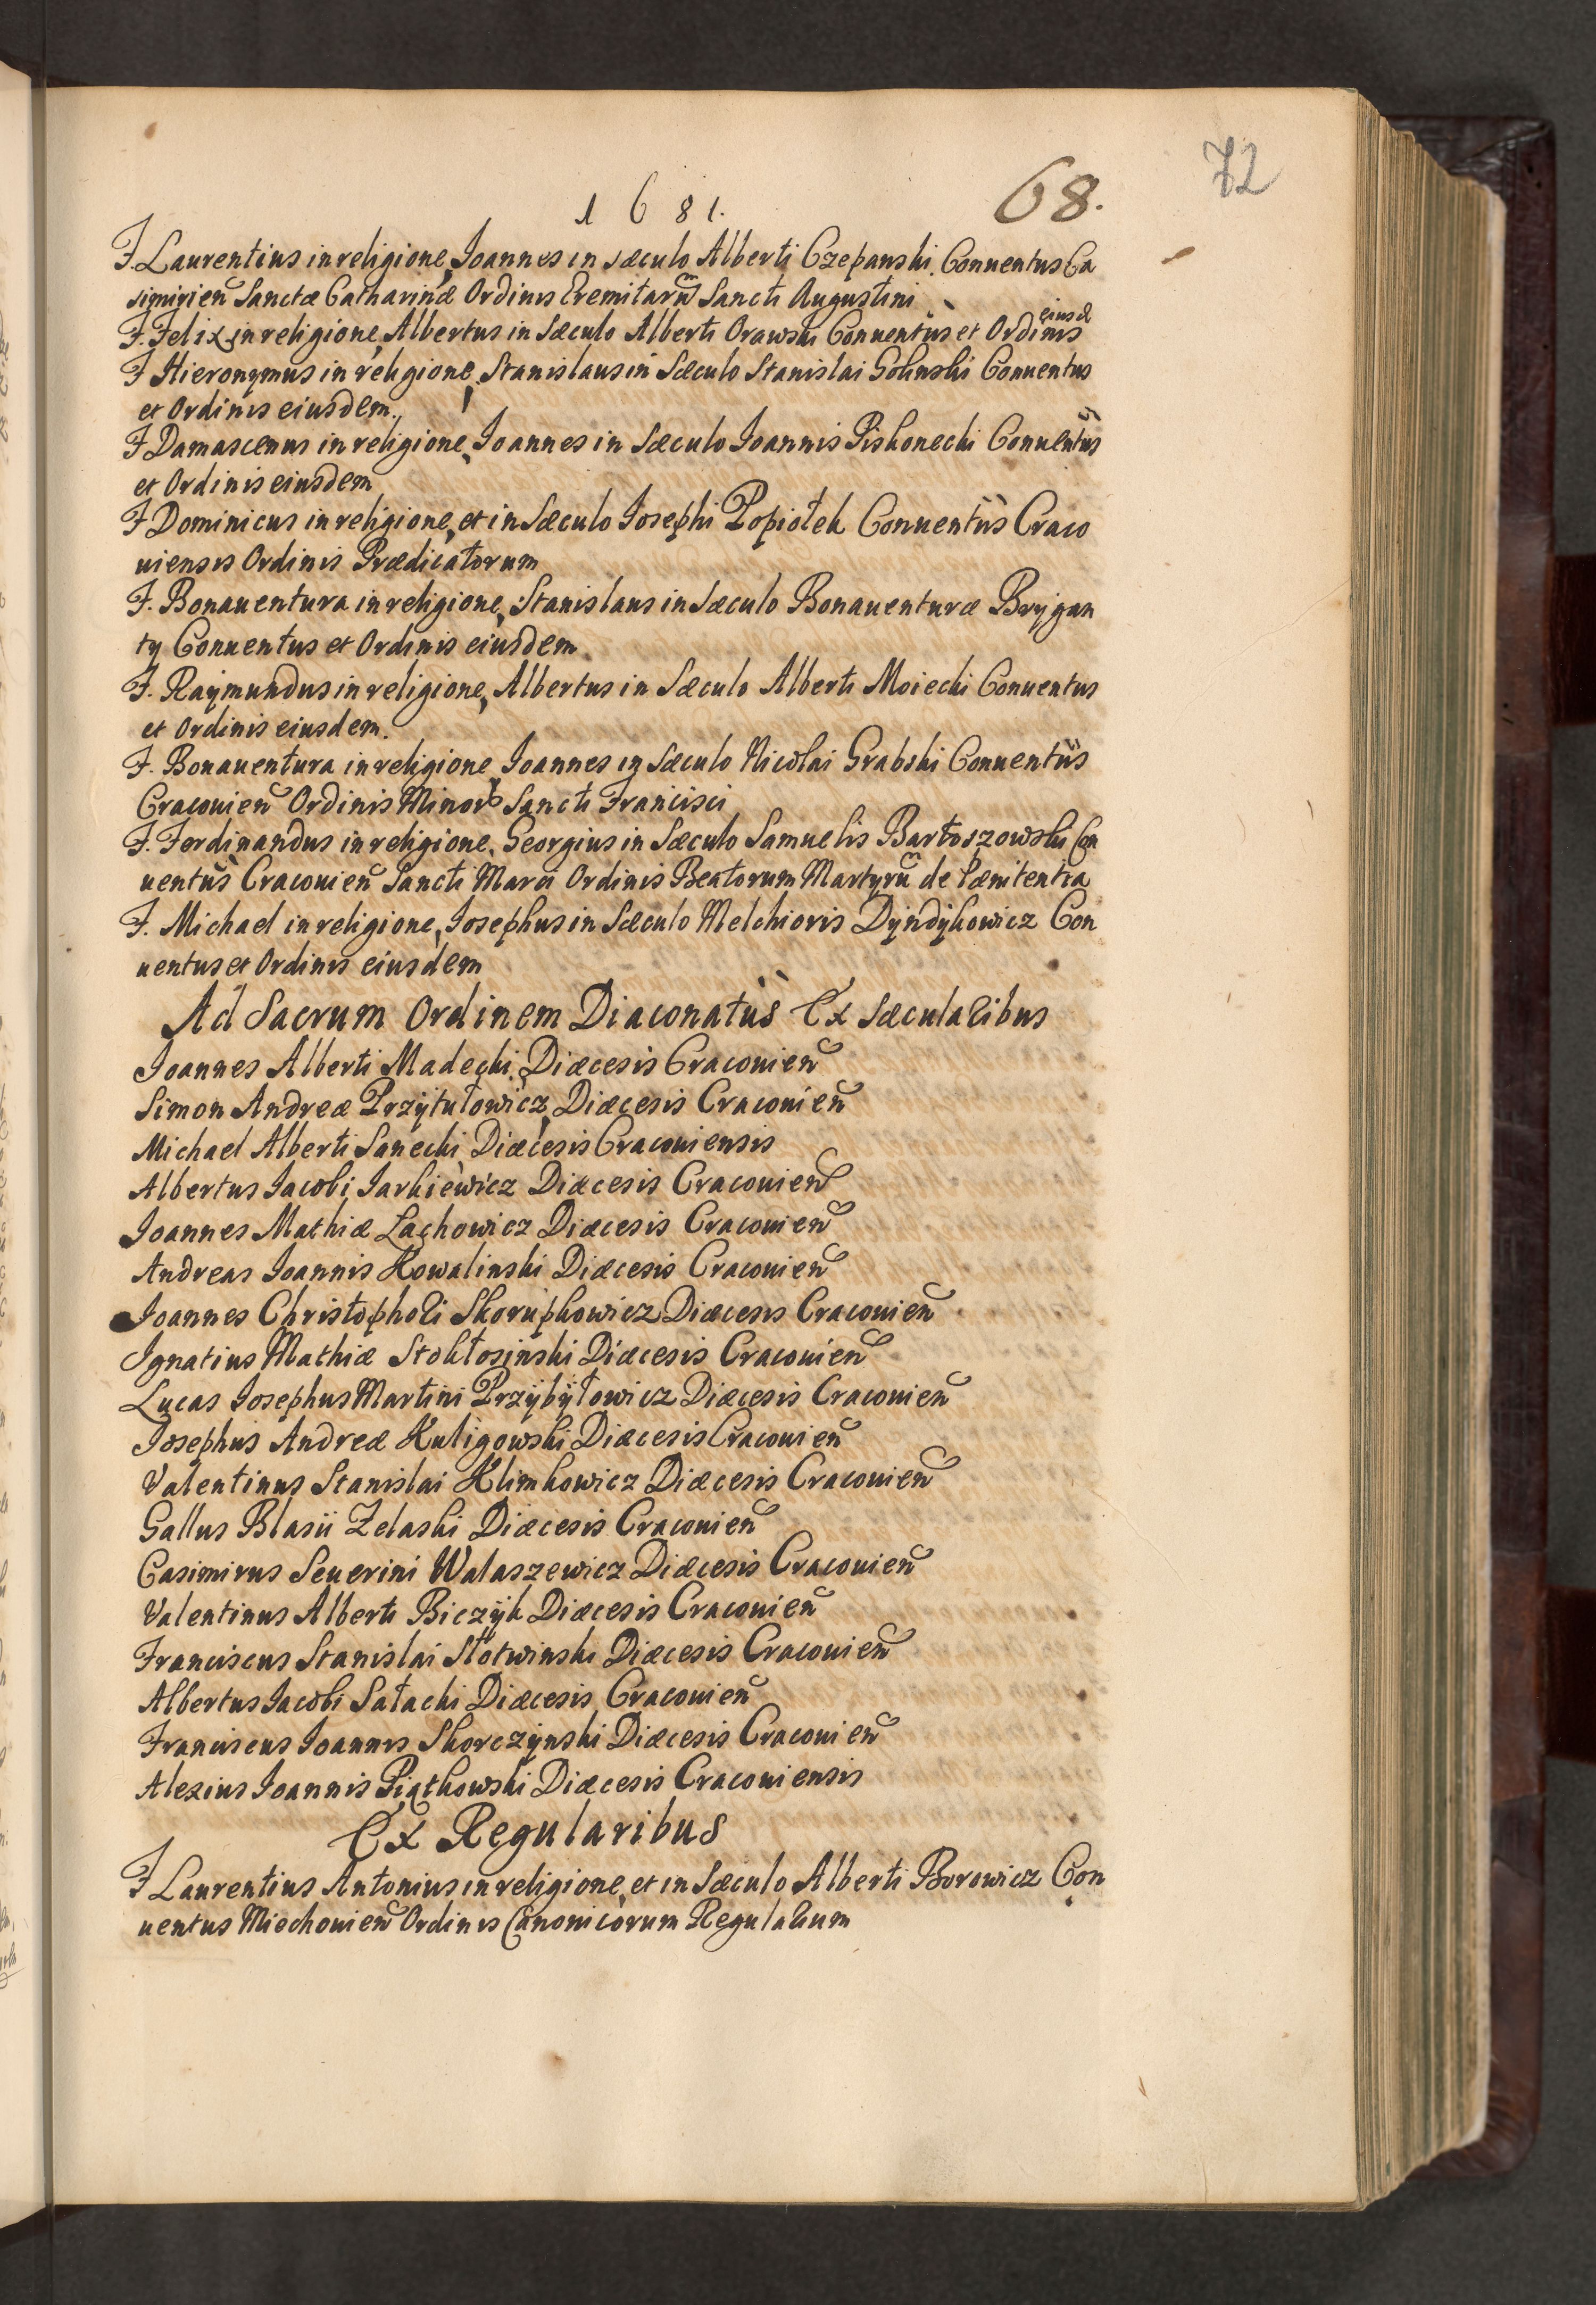 72
1681. 68.
F. Laurentius in religione, Joannes in sæculo Alberti Czepanski. Conuentus Ca
simirien̄ Sanctæ Catharinæ Ordinis Eremitarū Sancti Augustini
F. Felix in religione, Albertus in Sæculo Alberti Orawski Conuentùs et Ordinis eiusd̄
F Hieronymus in religione, Stanislaus in Sæculo Stanislai Golinski Conuentus
et Ordinis eiusdem.
F Damascenus in religione, Joannes in Sæculo Joannis Piskonecki Conuentùs
et Ordinis eiusdem
F Dominicus in religione, et in Sæculo Josephi Popiołek Conuentùs Craco
uiensis Ordinis Prædicatorum
F. Bonauentura in religione, Stanislaus in Sæculo Bonauenturæ Brygan
ty Conuentus et Ordinis eiusdem
F. Raymundus in religione, Albertus in Sæculo Alberti Moiecki Conuentus
et Ordinis eiusdem.
F. Bonauentura in religione, Joannes in Sæculo Nicolai Grabski Conuentùs
Cracouien̄ Ordinis Minorū Sancti Francisci
F. Ferdinandus in religione, Georgius in Sæculo Samuelis Bartoszowski Con
uentùs Cracouien̄ Sancti Marci Ordinis Beatorum Martyrū de Pænitentia
F. Michael in religione, Josephus in Sæculo Melchioris Dyndykowicz Con
uentus et Ordinis eiusdem
Ad Sacrum Ordinem Diaconatùs Ex Sæcularibus
Joannes Alberti Madecki Diæcesis Cracouien̄
Simon Andreæ Przytułowicz Diæcesis Cracouien̄
Michael Alberti Sanecki Diæcesis Cracouiensis
Albertus Jacobi Jarkiewicz Diæcesis Cracouien̄
Joannes Mathiæ Lachowicz Diæcesis Cracouien̄
Andreas Joannis Kowalinski Diæcesis Cracouien̄
Joannes Christophori Skorupkowicz Diæcesis Cracouien̄
Ignatius Mathiæ Stokłosinski Diæcesis Cracouien̄
Lucas Josephus Martini Przybyłowicz Diæcesis Cracouien̄
Josephus Andreæ Kuligowski Diæcesis Cracouien̄
Valentinus Stanislai Klimkowicz Diæcesis Cracouien̄
Gallus Blasii Zelaski Diæcesis Cracouien̄
Casimirus Seuerini Walaszewicz Diæcesis Cracouien̄
Valentinus Alberti Biczyk Diæcesis Cracouien̄
Franciscus Stanislai Słotwinski Diæcesis Cracouien̄
Albertus Jacobi Sałacki Diæcesis Cracouien̄
Franciscus Joannis Skorczynski Diæcesis Cracouien̄
Alexius Joannis Piątkowski Diæcesis Cracouiensis
Ex Regularibus
F Laurentius Antonius in religione, et in Sæculo Alberti Borowicz Con
uentus Miechouien̄ Ordinis Canonicorum Regularium